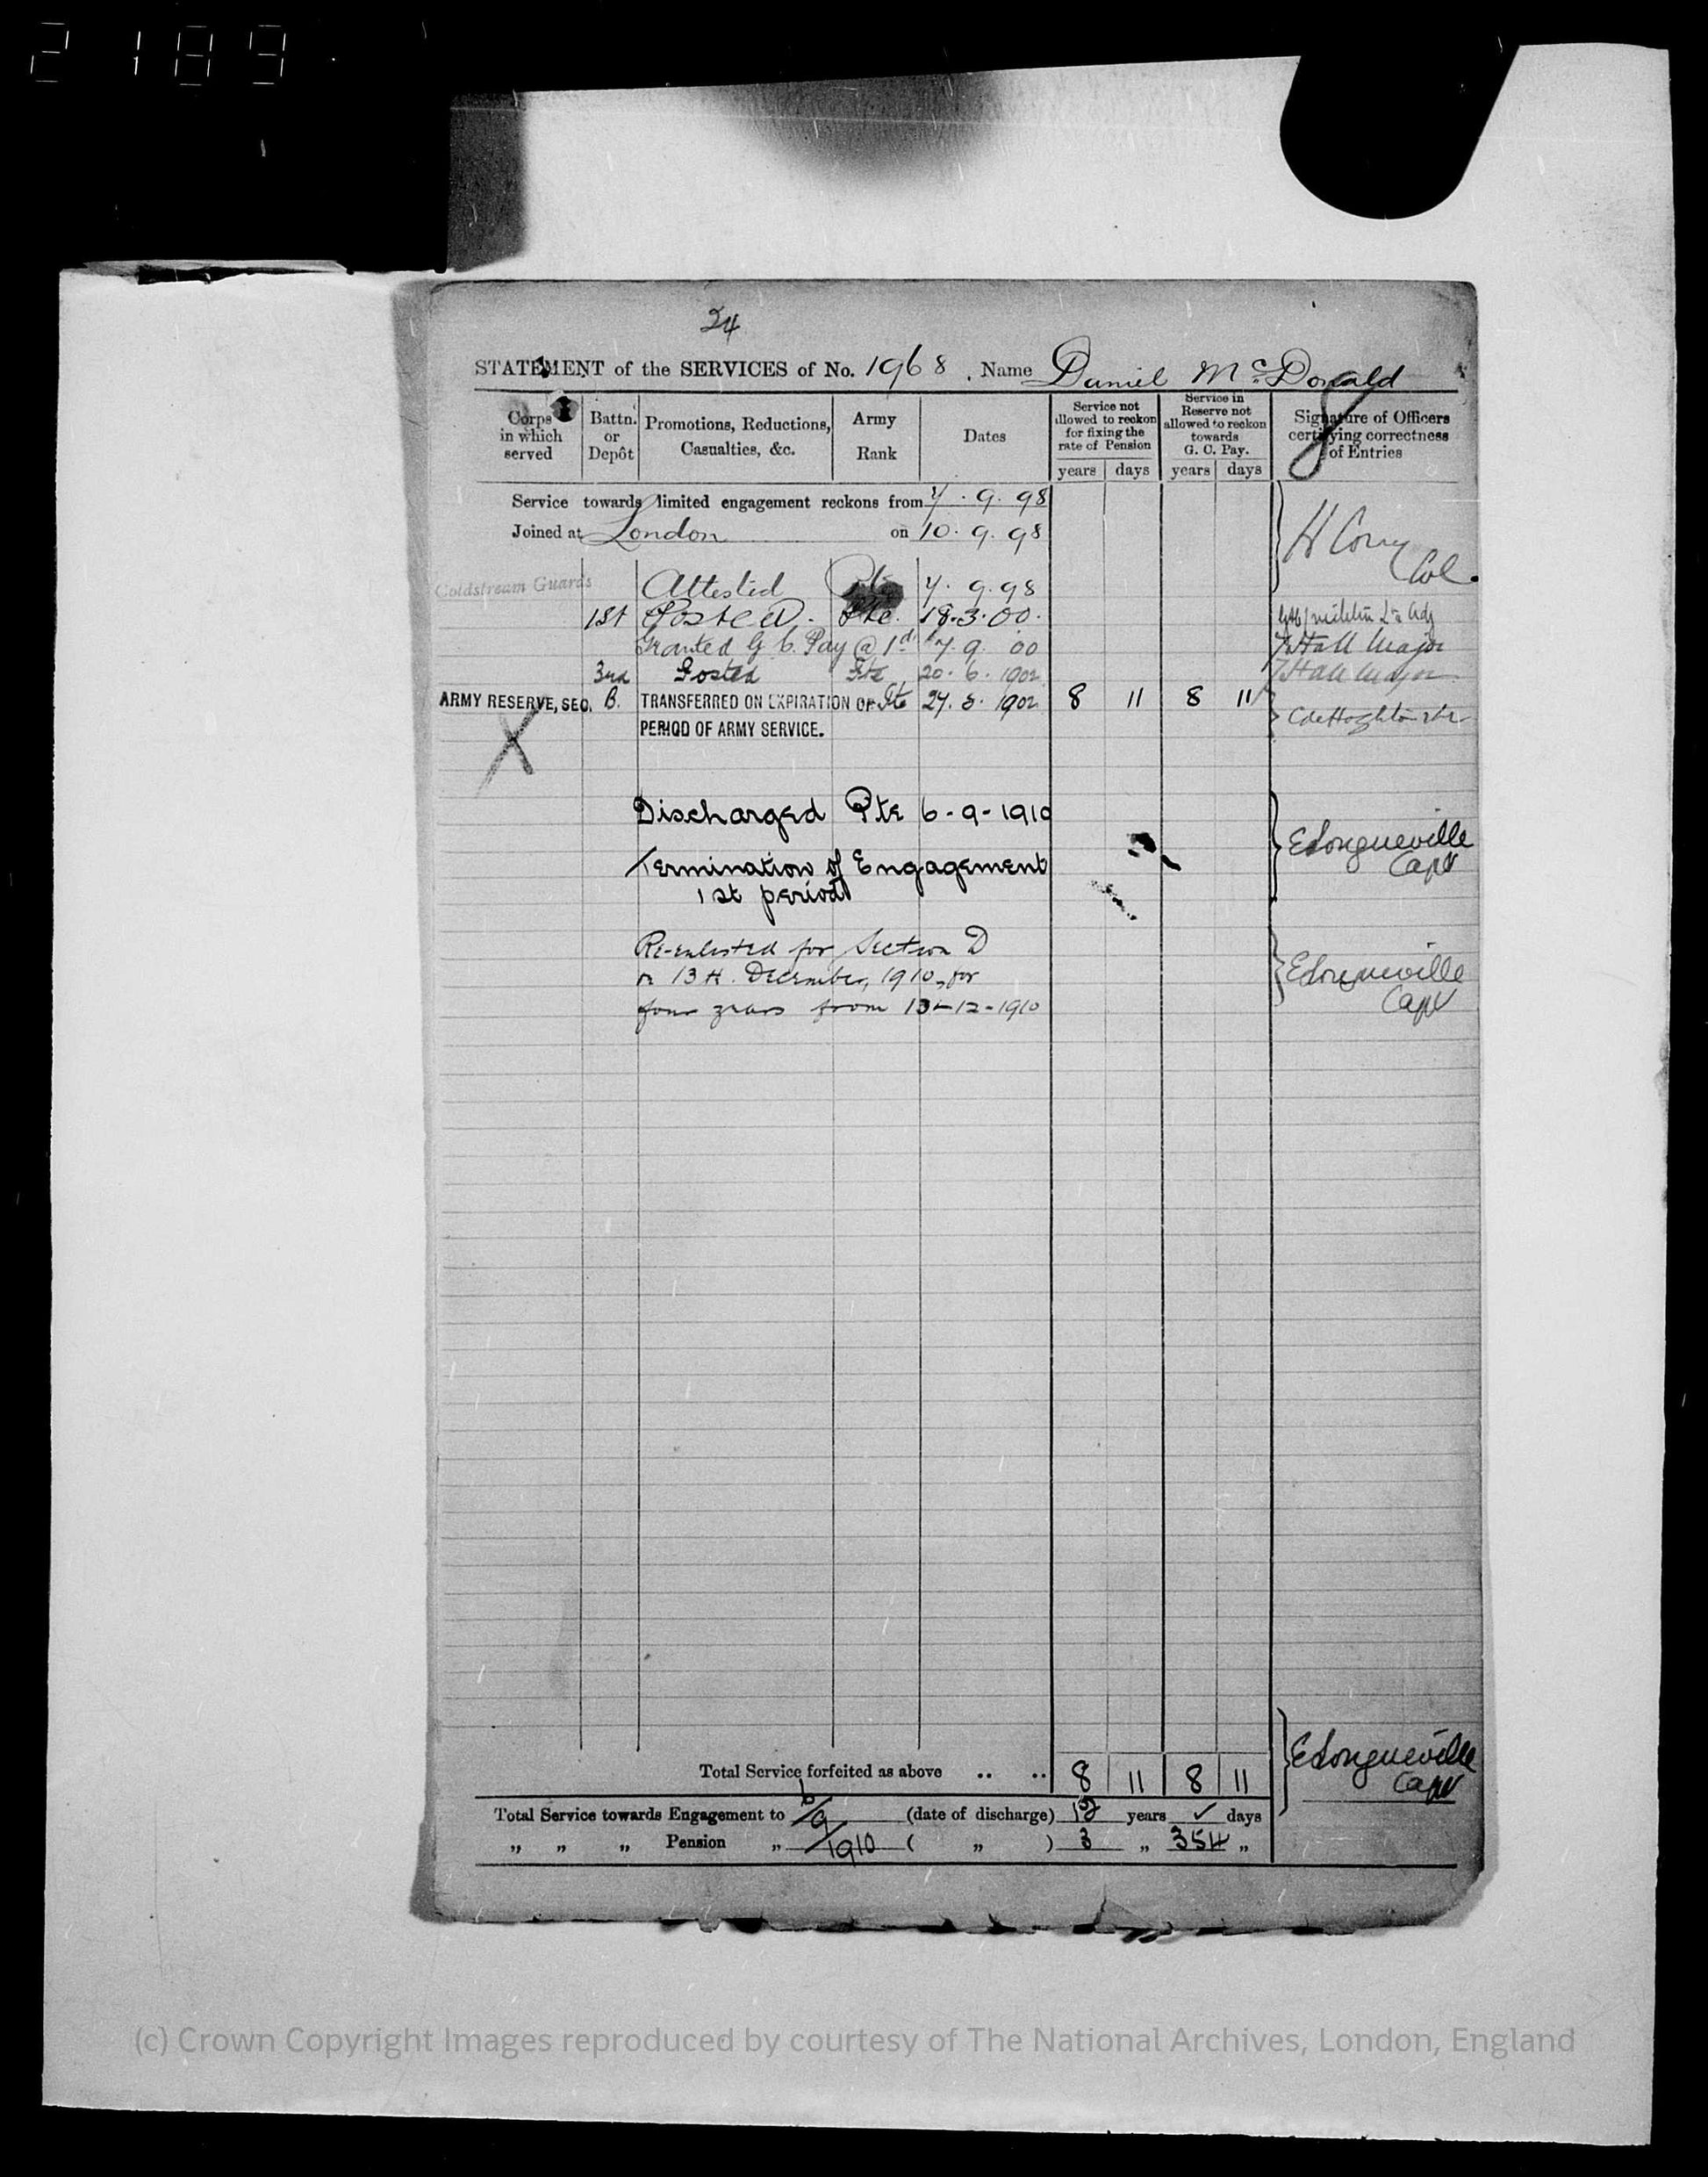 2189
24
STATEMENT of the SERVICES of No. 1968. Name Daniel McDonald
Corps in which served
Battn. or Depôt
Promotions, Reductions, Casualties, &c.
Army Rank
Dates
Service not allowed to reckon for fixing the rate of Pension
Service in Reserve not allowed to reckon towards G. C. Pay.
Signature of Officers certifying correctness of Entries
years days years days
Service towards limited engagement reckons from 7.9.98
Joined at London on 10.9.98
H Corry Col.
Coldstream Guards Attested Pte 7.9.98
1st Posted. Pte. 18.3.00.
Granted G C. Pay @ 1d 7.9.00 Hall Major
3rd Posted Pte 20.6.1902 Hall Major
ARMY RESERVE, SEC. B. TRANSFERRED ON EXPIRATION OF Pte 27.8.1902 8 11 8 11
PERIOD OF ARMY SERVICE.
Discharged Pte 6-9-1910
Termination of Engagement
1st period
ELongueville
Capt
Re-enlisted for Section D
on 13th. December, 1910, for
four years from 13-12-1910
ELongueville
Capt
Total Service forfeited as above .. .. 8 11 8 11
ELongueville
Capt
Total Service towards Engagement to 6/9 (date of discharge) 12 years ✓ days
„ „ „ Pension „ /1910 ( „ ) 3 „ 354 „
(c) Crown Copyright Images reproduced by courtesy of The National Archives, London, England